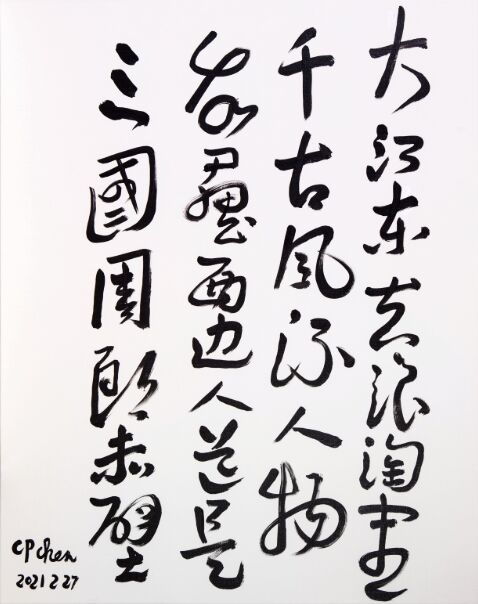 大江东去浪淘尽
千古风流人物
故垒西边人道是
三國周郎赤壁
CP chen
2021 2 27